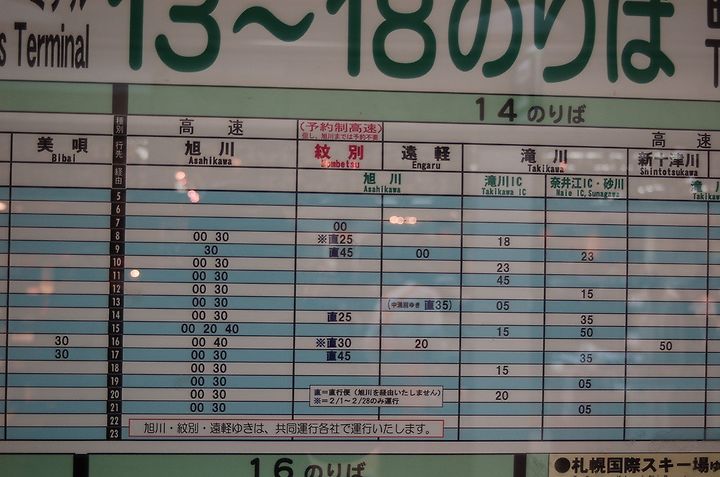 s Terminal 13～18のりば
14のりば
種別 高速 (予約制高速) 高速
但し、旭川までは予約不要
行先 美唄 旭川 紋別 遠軽 滝川 新十津川
Bibai Asahikawa Mombetsu Engaru Takikawa Shintotsukawa
経由 旭川 滝川IC 奈井江IC・砂川 滝川
Asahikawa Takikawa IC Naie IC, Sunagawa Takikawa
5
6
7 00
8 00 30 ※直25 18
9 30 直45 00 23
10 00 30 23
11 00 30 45
12 00 30 15
13 00 30 直35) 05
14 00 30 直25 35
15 00 20 40 15 50
16 30 00 40 ※直30 20 50
17 30 00 30 直45 35
18 00 30 15
19 00 30 05
20 00 30 20
21 00 30 05
22
23
直=直行便（旭川を経由いたしません）
※=2/1～2/28のみ運行
旭川・紋別・遠軽ゆきは、共同運行各社で運行いたします。
16のりば
●札幌国際スキー場ゆ